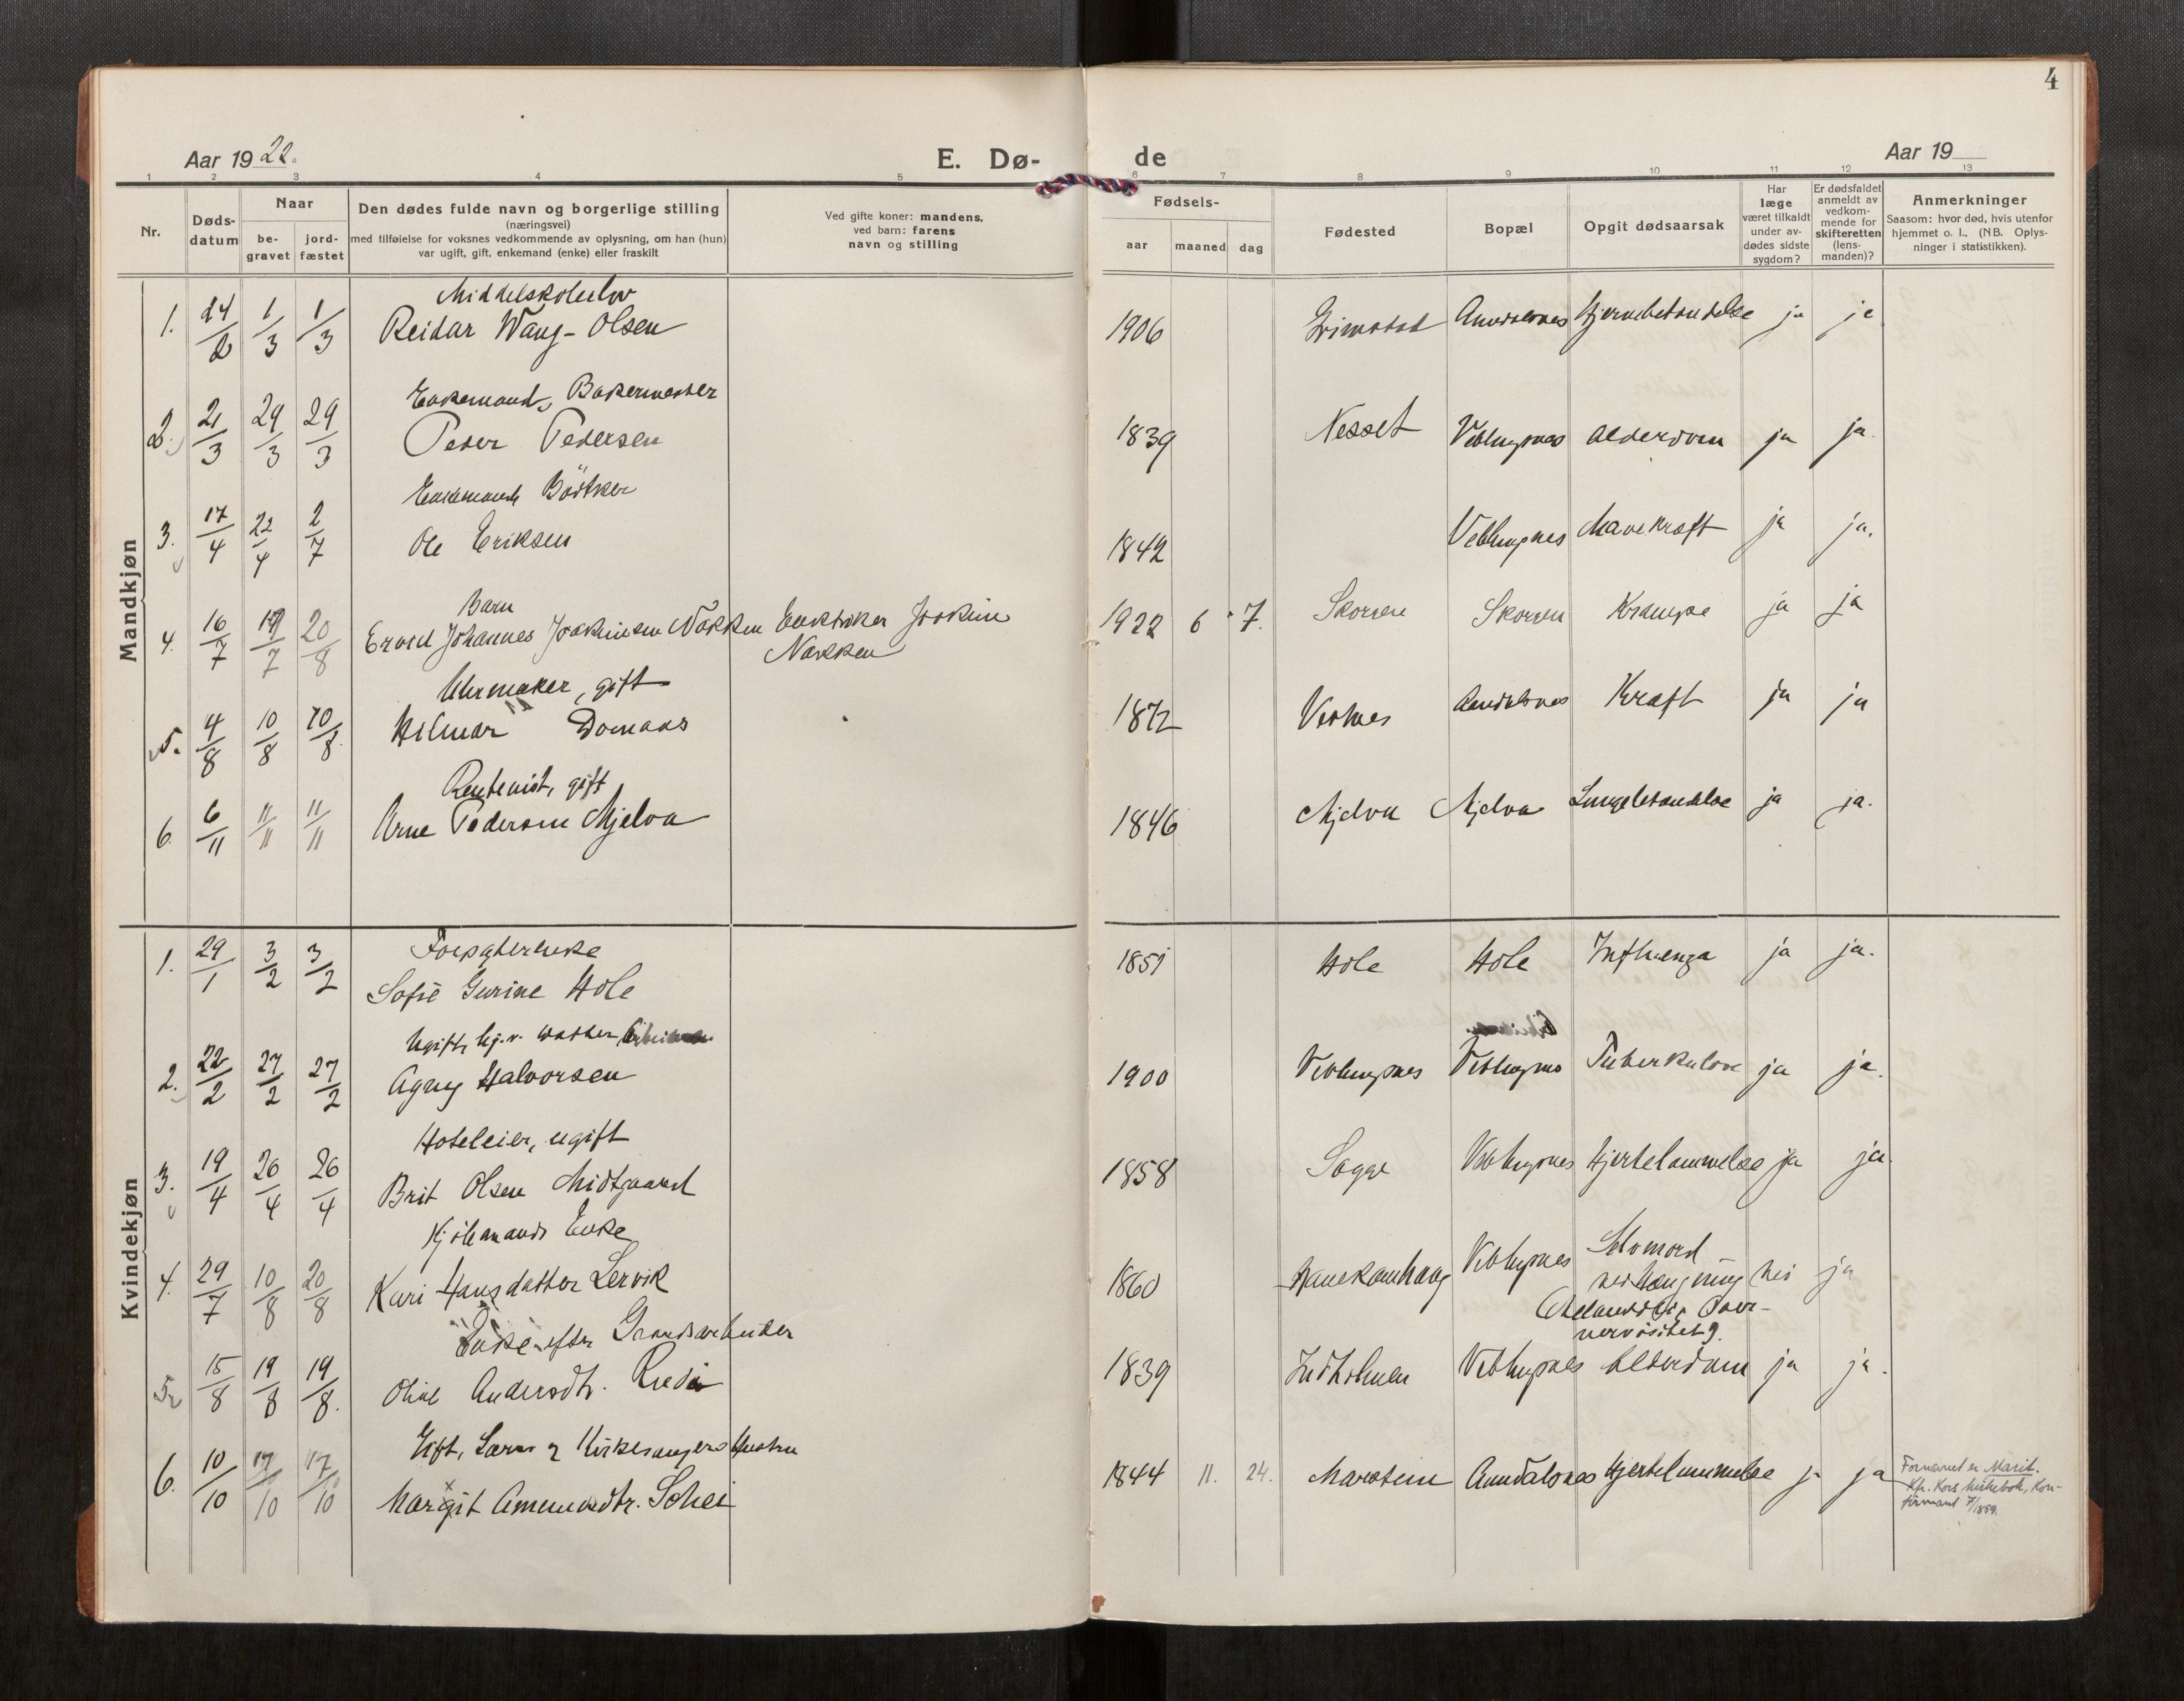 4
Aar 1922.
E. Dø-
de
Aar 19
1 2 3 4 5 6 7 8 9 10 11 12 13
Nr.
Døds-
datum
Naar
be-
gravet
jord-
fæstet
Den dødes fulde navn og borgerlige stilling
(næringsvei)
med tilføielse for voksnes vedkommende av oplysning, om han (hun)
var ugift, gift, enkemand (enke) eller fraskilt
Ved gifte koner: mandens,
ved barn: farens
navn og stilling
Fødsels-
aar maaned dag
Fødested
Bopæl
Opgit dødsaarsak
Har
læge
været tilkaldt
under av-
dødes sidste
sygdom?
Er dødsfaldet
anmeldt av
vedkom-
mende for
skifteretten
(lens-
manden)?
Anmerkninger
Saasom: hvor død, hvis utenfor
hjemmet o. l., (NB. Oplys-
ninger i statistikken).
Mandkjøn
Middelskoleelev
1. 24/2 1/3 1/3 Reidar Wang-Olsen 1906 Grimstad Aandalsnes Hjernebetændelse ja ja
Enkemand, Bakermester
2. 21/3 29/3 29/3 Peder Pedersen 1839 Nesset Veblungsnes Alderdom ja ja.
Enkemand Bödtker
3. 17/4 22/4 2/7 Ole Eriksen 1842 Veblungsnes Mavekræft ja ja.
Barn
4. 16/7 19/7 20/8 Johannes Joakimsen Nakken Joakim 1922 6 7. Skorven Skorven Krampe ja ja
Nakken
Uhrmaker, gift
5. 4/8 10/8 10/8 Hilmar Domaas 1872 Vestnes Aandalsnes Kræft ja ja
Rentenist, gift
6. 6/11 11/11 11/11 Arne Pedersen Mjelva 1846 Mjelva Mjelva Lungebetændelse ja ja.
Kvindekjøn
Forpagterenke
1. 29/1 3/2 3/2 Sofie Gurine Hole 1851 Hole Hole Influenza ja ja.
Ugift, hj.v. datter
2. 22/2 27/2 27/2 Agny Halvorsen 1900 Veblungsnes Veblungsnes Tuberkulose ja ja.
Hoteleier, ugift
3. 19/4 26/4 26/4 Brit Olsen Midtgaard 1858 Sogge Veblungsnes Hjertelammelse ja ja.
Kjøbmands Enke
4. 29/7 10/8 20/8 Kari Hansdatter Lervik 1860 Hanekamhaug Veblungsnes Selvmord
ved hængning nei ja
nervøsitet).
Enke efter Gaardsarbeider
5. 15/8 19/8 19/8. Oline Andersdtr. 1839 Indholmen Veblungsnes Alderdom ja ja.
Gift, Lærer og Kirkesangers Hustru
6. 10/10 17/10 17/10 Margit Amundsdtr. Schei 1844 11. 24. Marstein Aandalsnes Hjertelammelse ja ja
Fornavnet er Marit.
Kfr. Kors kirkebok, Kon-
firmant 7/1859.